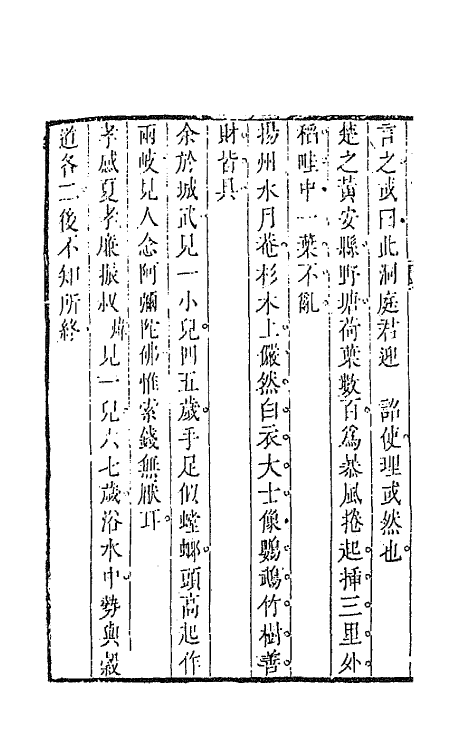 言之或曰此洞庭君迎　詔使理或然也
楚之黃安縣野塘荷葉數百爲暴風捲起揷三里外
稻畦中一葉不亂
揚州水月菴杉木上儼然白衣大士像鸚鵡竹樹善
財皆具
余於城武見一小兒四五歲手足似螳螂頭高起作
兩岐見人念阿彌陀佛惟索錢無厭耳
孝感夏孝廉振叔煒見一兒六七歲浴水中勢與穀
道各二後不知所終